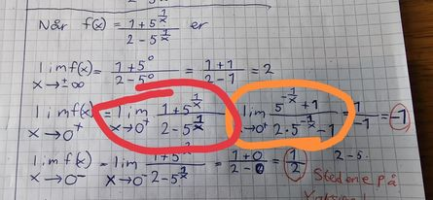 Når f(x) = (1+5^(1/x))/(2-5^(1/x)) er
lim f(x) x→±∞ = (1+5^0)/(2-5^0) = (1+1)/(2-1) = 2
lim f(x) x→0^+ = lim x→0^+ (1+5^(1/x))/(2-5^(1/x)) lim x→0^+ (5^(-1/x)+1)/(2·5^(-1/x)-1) = 1/-1 = -1
lim f(x) x→0^- = lim x→0^- (1+5^(1/x))/(2-5^(1/x)) = (1+0)/(2-0) = 1/2
2-5
Stedene på